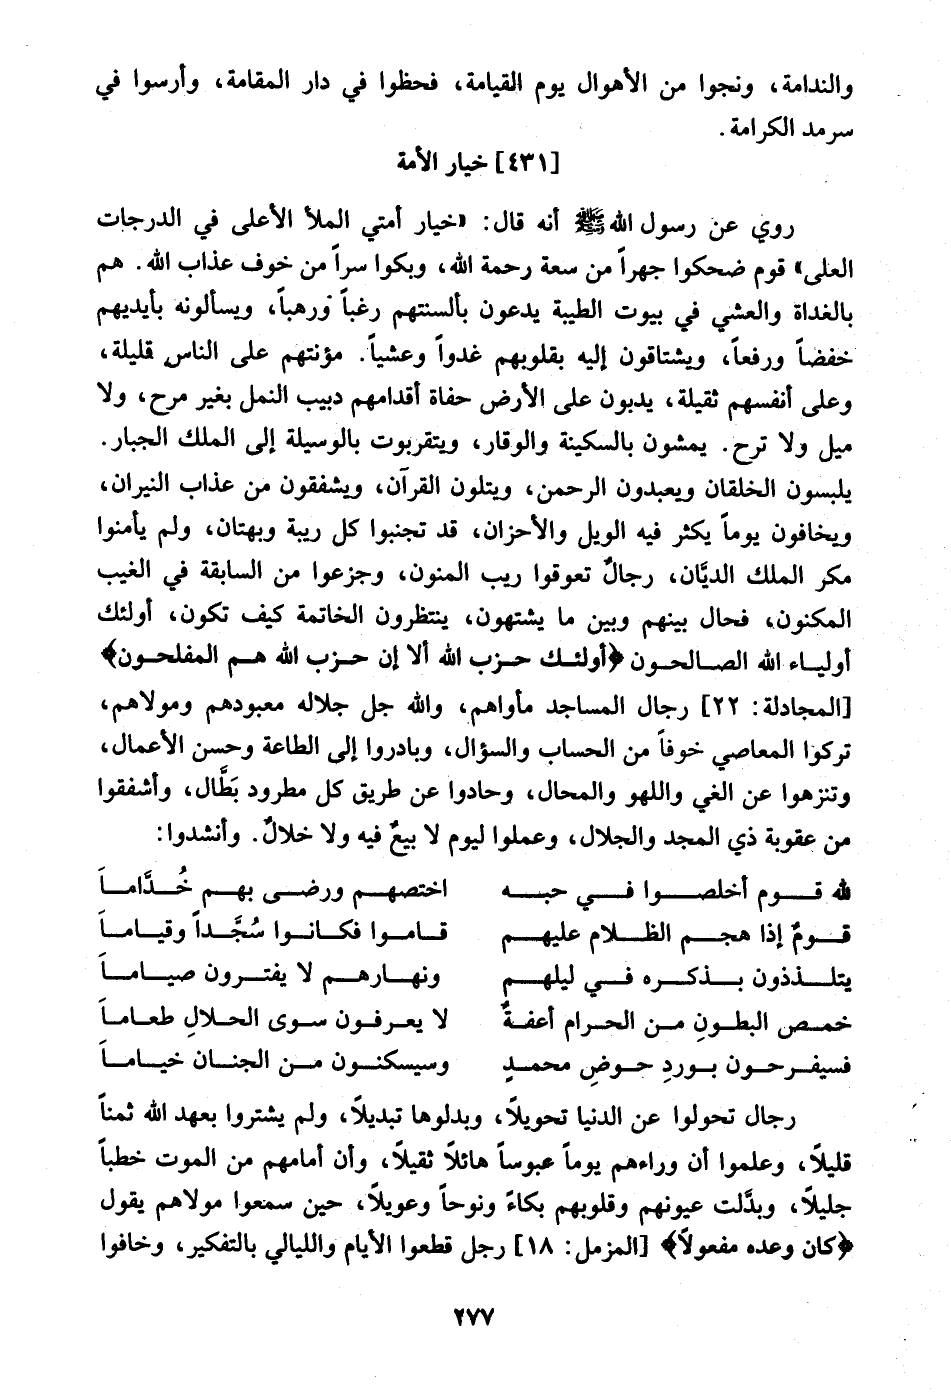 والندامة، ونجوا من الأهوال يوم القيامة، فحظوا في دار المقامة، وأرسوا في
سرمد الكرامة.
[٤٣١] خيار الأمة
روي عن رسول الله ﷺ أنه قال: «خيار أمتي الملأ الأعلى في الدرجات
العلى» قوم ضحكوا جهراً من سعة رحمة الله، وبكوا سراً من خوف عذاب الله. هم
بالغداة والعشي في بيوت الطيبة يدعون بألسنتهم رغباً ورهباً، ويسألونه بأيديهم
خفضاً ورفعاً، ويشتاقون إليه بقلوبهم غدواً وعشياً. مؤنتهم على الناس قليلة،
وعلى أنفسهم ثقيلة، يدبون على الأرض حفاة أقدامهم دبيب النمل بغير مرح، ولا
ميل ولا ترح. يمشون بالسكينة والوقار، ويتقربوت بالوسيلة إلى الملك الجبار.
يلبسون الخلقان ويعبدون الرحمن، ويتلون القرآن، ويشفقون من عذاب النيران،
ويخافون يوماً يكثر فيه الويل والأحزان، قد تجنبوا كل ريبة وبهتان، ولم يأمنوا
مكر الملك الديَّان، رجالٌ تعوقوا ريب المنون، وجزعوا من السابقة في الغيب
المكنون، فحال بينهم وبين ما يشتهون، ينتظرون الخاتمة كيف تكون، أولئك
أولياء الله الصالحون ﴿أولئك حزب الله ألا إن حزب الله هم المفلحون﴾
[المجادلة: ٢٢] رجال المساجد مأواهم، والله جل جلاله معبودهم ومولاهم،
تركوا المعاصي خوفاً من الحساب والسؤال، وبادروا إلى الطاعة وحسن الأعمال،
وتنزهوا عن الغي واللهو والمحال، وحادوا عن طريق كل مطرود بَطَّال، وأشفقوا
من عقوبة ذي المجد والجلال، وعملوا ليوم لا بيعٌ فيه ولا خلالٌ. وأنشدوا:
لله قوم أخلصوا في حبه اختصهم ورضى بهم خُدَّاماَ
قومٌ إذا هجم الظلام عليهم قاموا فكانوا سُجَّداً وقياماَ
يتلذذون بذكره في ليلهم ونهارهم لا يفترون صياماَ
خمص البطونِ من الحرام أعفةٌ لا يعرفون سوى الحلالِ طعاماَ
فسيفرحون بوردِ حوضِ محمدٍ وسيسكنون من الجنان خياماَ
رجال تحولوا عن الدنيا تحويلاً، وبدلوها تبديلاً، ولم يشتروا بعهد الله ثمناً
قليلاً، وعلموا أن وراءهم يوماً عبوساً هائلاً ثقيلاً، وأن أمامهم من الموت خطباً
جليلاً، وبدَّلت عيونهم وقلوبهم بكاءً ونوحاً وعويلاً، حين سمعوا مولاهم يقول
﴿كان وعده مفعولاً﴾ [المزمل: ١٨] رجل قطعوا الأيام والليالي بالتفكير، وخافوا
٢٧٧